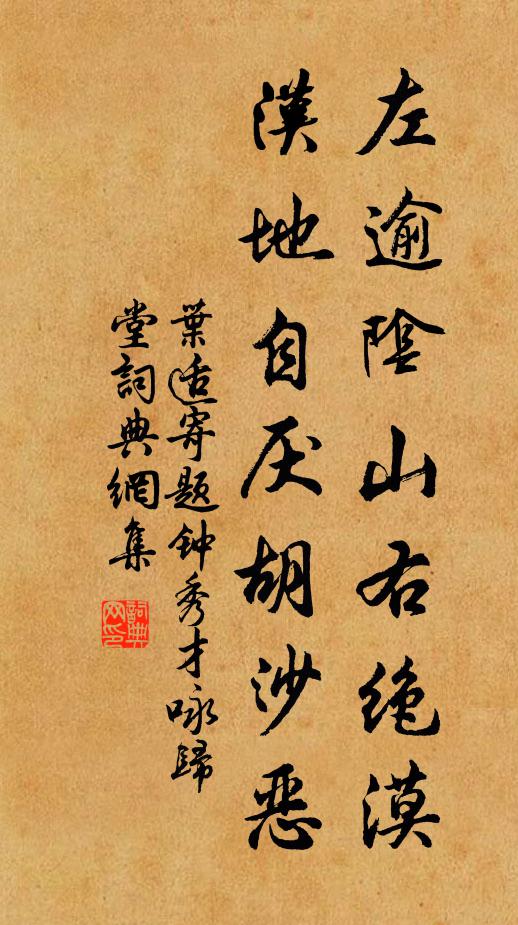 左逾陰山右绝漠
漢地自厌胡沙恶
葉适寄题钟秀才咏歸
堂詞典網集
詞典网印